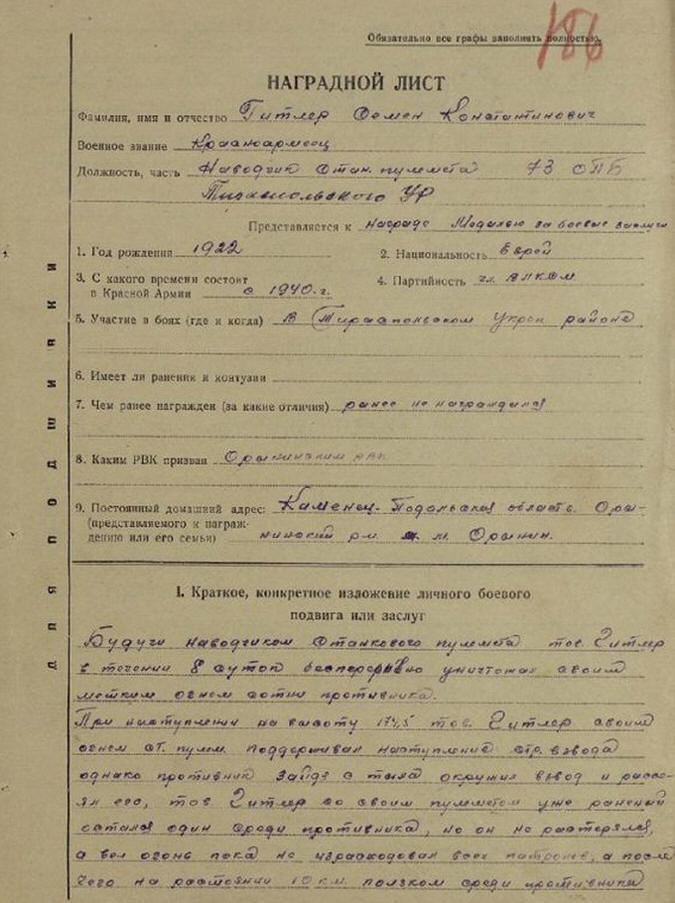 186
Обязательно все графы заполнять полностью.
НАГРАДНОЙ ЛИСТ
Фамилия, имя и отчество Гитлер Семен Константинович
Военное звание Красноармеец
Должность, часть Наводчик станк. пулемета 73 ОПБ
Тираспольского УР
Представляется к награде Медалью за боевые заслуги
1. Год рождения 1922
2. Национальность Еврей
3. С какого времени состоит
в Красной Армии с 1940 г.
4. Партийность чл. ВЛКСМ
5. Участие в боях (где и когда) В Тираспольском Укреп районе
6. Имеет ли ранения и контузии
7. Чем ранее награжден (за какие отличия) ранее не награждался
8. Каким РВК призван Орынинским РВК
9. Постоянный домашний адрес: Каменец-Подольская область Оры-
(представляемого к награж-
дению или его семьи) нинский р-н м. Орынин.
ДЛЯ ПОДШИВКИ
I. Краткое, конкретное изложение личного боевого
подвига или заслуг
Будучи наводчиком станкового пулемета тов. Гитлер
в течении 8 суток беспрерывно уничтожал своим
метким огнем сотни противника.
При наступлении на высоту 174,5 тов. Гитлер своим
огнем ст. пулем. поддерживал наступление стр. взвода
однако противник зайдя с тыла окружил взвод и рассе-
ял его, тов. Гитлер со своим пулеметом уже раненый
остался один среди противника, но он не растерялся,
а вел огонь пока не израсходовал всех патронов, а после
чего на расстоянии 10 км. ползком среди противника